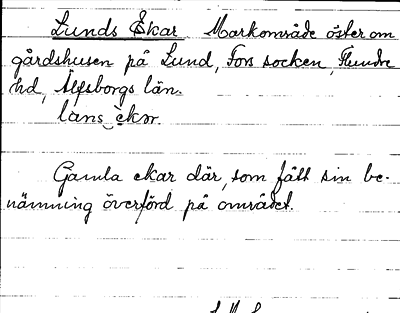 Lunds Ekar Markområde öster om
gårdshusen på Lund, Fors socken, Flundre
hd, Älfsborgs län.
lans ekar.
Gamla ekar där, som fått sin be-
nämning överförd på området.